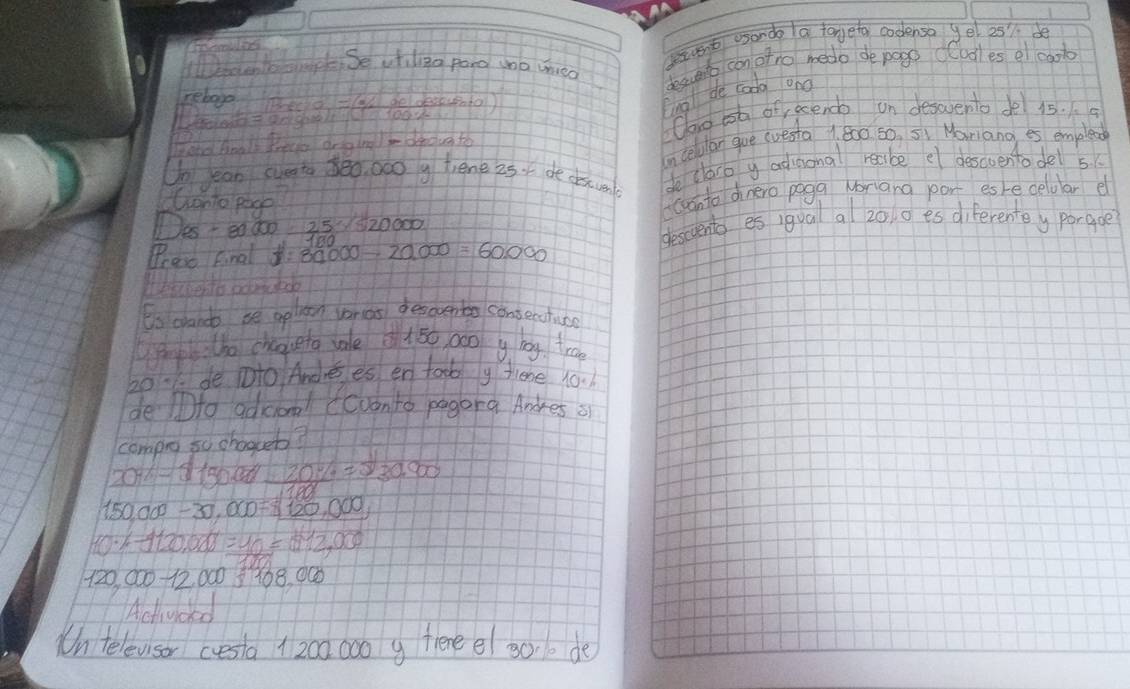 Formulas
Descuento simple: Se utiliza para una unica
rebaja
Descuento = original (% de descuento)
100%
Precio final: Precio original - descuento
Un jean cuesta $80.000 y tiene 25% de descuento
Cuanto pago
Des - 80000 25 / $20000
100
Precio final $: 80000 - 20.000 = 60.000
Descuento acumulado
Es cuando se aplican varios descuentos
Ejemplo: Una chaqueta vale $150,000 y hoy trae
20% de Dto Andrés, es en todo y tiene 10%
de Dto adicional ¿Cuanto pagara Andres si
compra su chaqueta?
20% - $150.000 20% = $30.000
100
150,000 - 30,000 = $120,000
10% $120,000 = 10 = $12,000
100
120,000 - 12.000 $ 108,000
Actividad
Un televisor cuesta 1200.000 y tiene el 30% de
usando la tarjeta codensa y el 25% de
descuento con otro medio de pago ¿Cual es el costo
de cada uno
Claro esta ofrecendo un descuento del 15%
un celular que cuesta 1.800.50, si Mariana es emplead
de claro y adicional recibe el descuento del 5%
¿Cuanto dinero paga Mariana por este celular el
descuento es igual al 20% o es diferente y porque